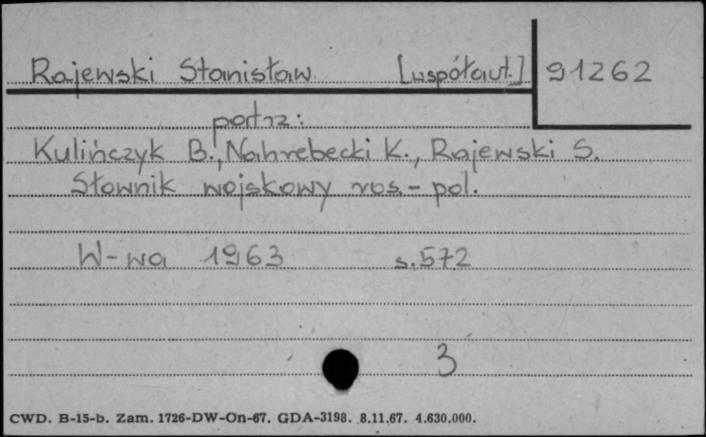 Rajewski Stanisław [współaut.] 91262
patrz:
Kulińczyk B., Nahrebecki K., Rajewski S.
Słownik wojskowy ros.-pol.
W-wa 1963 s.572
3
CWD. B-15-b. Zam. 1726-DW-On-67. GDA-3198. 8.11.67. 4.630.000.